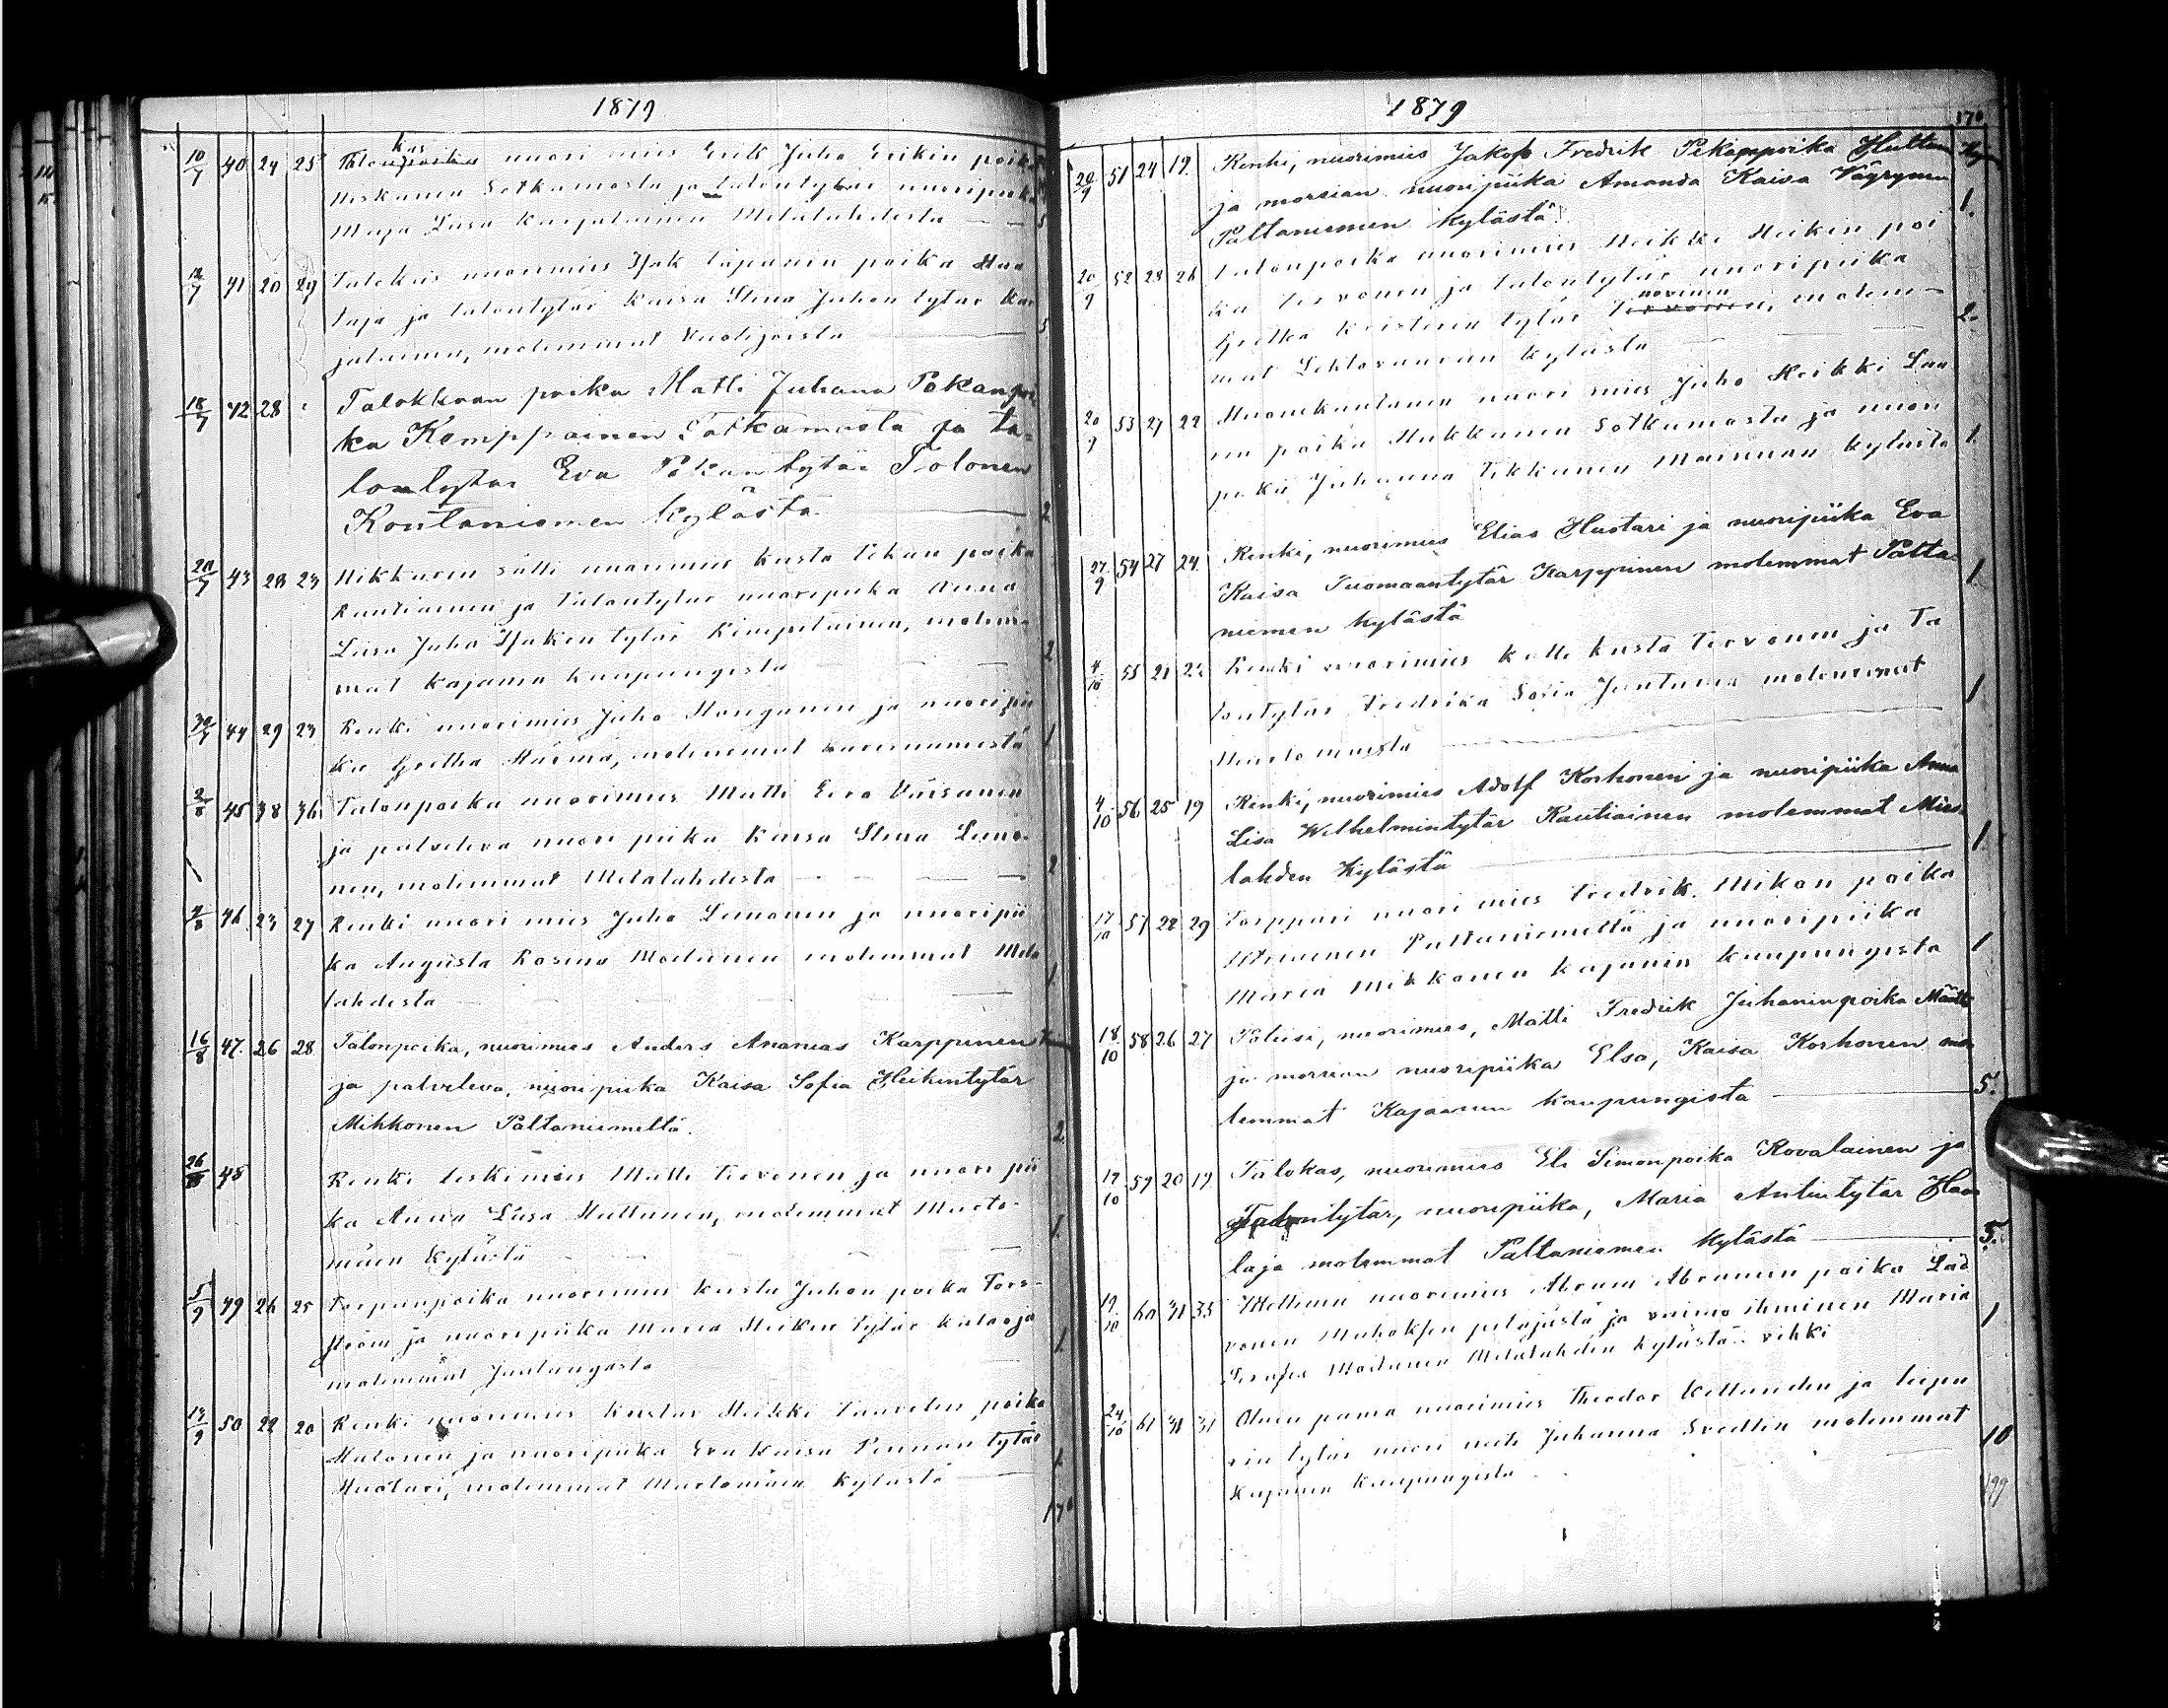 1879
10/7 40 24 25 Talonpoika kas nuori mies Erik Juho Erikin poika
Heskanen Sotkamosta ja talontytär nuoripiika
Maja Liisa Karjalainen Melalahdesta — — 5
7 41 20 29 Talokas nuorimies Isak tapanin poika Haa
taja ja talontytär Kaisa Stina Juhon tytär Kar
jalainen, molemmat Vuolijoesta — 5
18/7 42 28 Talokkaan poika Matti Juhana Pekanpoi
ka Kemppainen Sotkamosta ja ta-
lontytär Eva Pekantytär Tolonen
Kontaniemen kylästä — 2
20/7 43 28 23 Nikkarin sälli nuorimies Kusta Pekan poika
Rautiainen ja talontytär nuoripiika Anna
Liisa Juho Isakin tytär Kimpilainen, molem-
mat Kajanin kaupungista — — — 2
30/7 44 29 23 Renki nuorimies Juho Manganen ja nuoripii
ka Gretha Härmä, molemmat 1
2/8 45 38 36 Talonpoika nuorimies Matti Eeva Väisänen
ja palveleva nuori piika Kaisa Stina Leino-
nen, molemmat Melalahdesta — — — 2
4/8 46 23 27 Renki nuori mies Juho Leinonen ja nuoripii
ka Augusta Rosina Moilanen molemmat Mela
lahdesta — — — 1
16/8 47. 26 28 Talonpoika, nuorimies Anders Ananias Karppinen
ja palveleva, nuoripiika Kaisa Sofia Heikintytär
Mikkonen Paltaniemeltä. 2
26/8 48 Renki leskimies Matti Tervonen ja nuori pii
ka Anna Liisa Huttunen, molemmat Murto-
mäen kylästä — — — 1
5/9 49 26 25 Torpanpoika nuorimies Kusta Juhon poika Fors-
ström ja nuoripiika Maria Heikin tytär Kataaja
molemmat Juntungasta — 1
13/9 50 22 20 Renki nuorimies Kustas Heikki Taavetin poika
Halonen ja nuoripiika Eva Kaisa Pennan tytär
Huotari, molemmat Murtomäen kylästä — 1
170
1879
170
20/9 51 24 19 Renki, nuorimies Jakob Fredrik Pekanpoika Huttunen
ja morsian nuoripiika Amanda Kaisa Väyrynen
Paltaniemen kylästä. 1.
20/9 52 28 26 Talonpoika nuorimies Heikki Heikin poi
ka Tervonen ja talontytär nuoripiika
Gretha Kristerin tytär Tervonen, molem-
mat Lehtovaaran kylästä — 2.
20/9 53 27 22 Muonikuntanen nuori mies Juho Heikki Lau
rin poika Mukkanen Sotkamosta ja nuori
piika Johanna Tikkanen Mainuan kylästä 1.
27/9 54 27 24. Renki, nuorimies Elias Huotari ja nuoripiika Eva
Kaisa Tuomaantytär Karppinen molemmat Palta-
niemen kylästä 1.
4/10 55 21 22 Renki nuorimies Kalle Kusta Tervonen ja Ta
lontytär Fredrika Sofia Juntunen molemmat
Murtomäesta — 1
4/10 56 25 19 Renki, nuorimies Adolf Korhonen ja nuoripiika Anna
Lisa Wilhelmintytär Rautiainen molemmat Mies-
lahden Kylästä — 1
17/10 57 22 29 Torppari nuori mies Fredrik Mikon poika
Paltaniemeltä ja nuoripiika
Maria Mikkonen Kajanin kaupungista 1
18/10 58 26 27 Poliisi, nuorimies, Matti Fredrik Juhaninpoika Määttä
ja morsian nuoripiika Elsa, Kaisa Korhonen mo-
lemmat Kajaanin kaupungista — 5.
19/10 59 20 19 Talokas, nuorimies Eli Simonpoika Kovalainen ja
Talontytär, nuoripiika, Maria Antintytär Haa
taja molemmat Paltaniemen kylästä — 5.
19/10 60 31 33 Itellinen nuorimies Abram Abramin poika Lad
vonen Muhoksen pitäjästä ja vaimo ihminen Maria
Serafia Moilanen Melalahden kylästä vihki 1
24/10 61 31 31 Oluen panija nuorimies Theodor Kettunen ja leipu
rin tytär nuori neiti Johanna Svedlin molemmat
Kajanin kaupungista 10
199